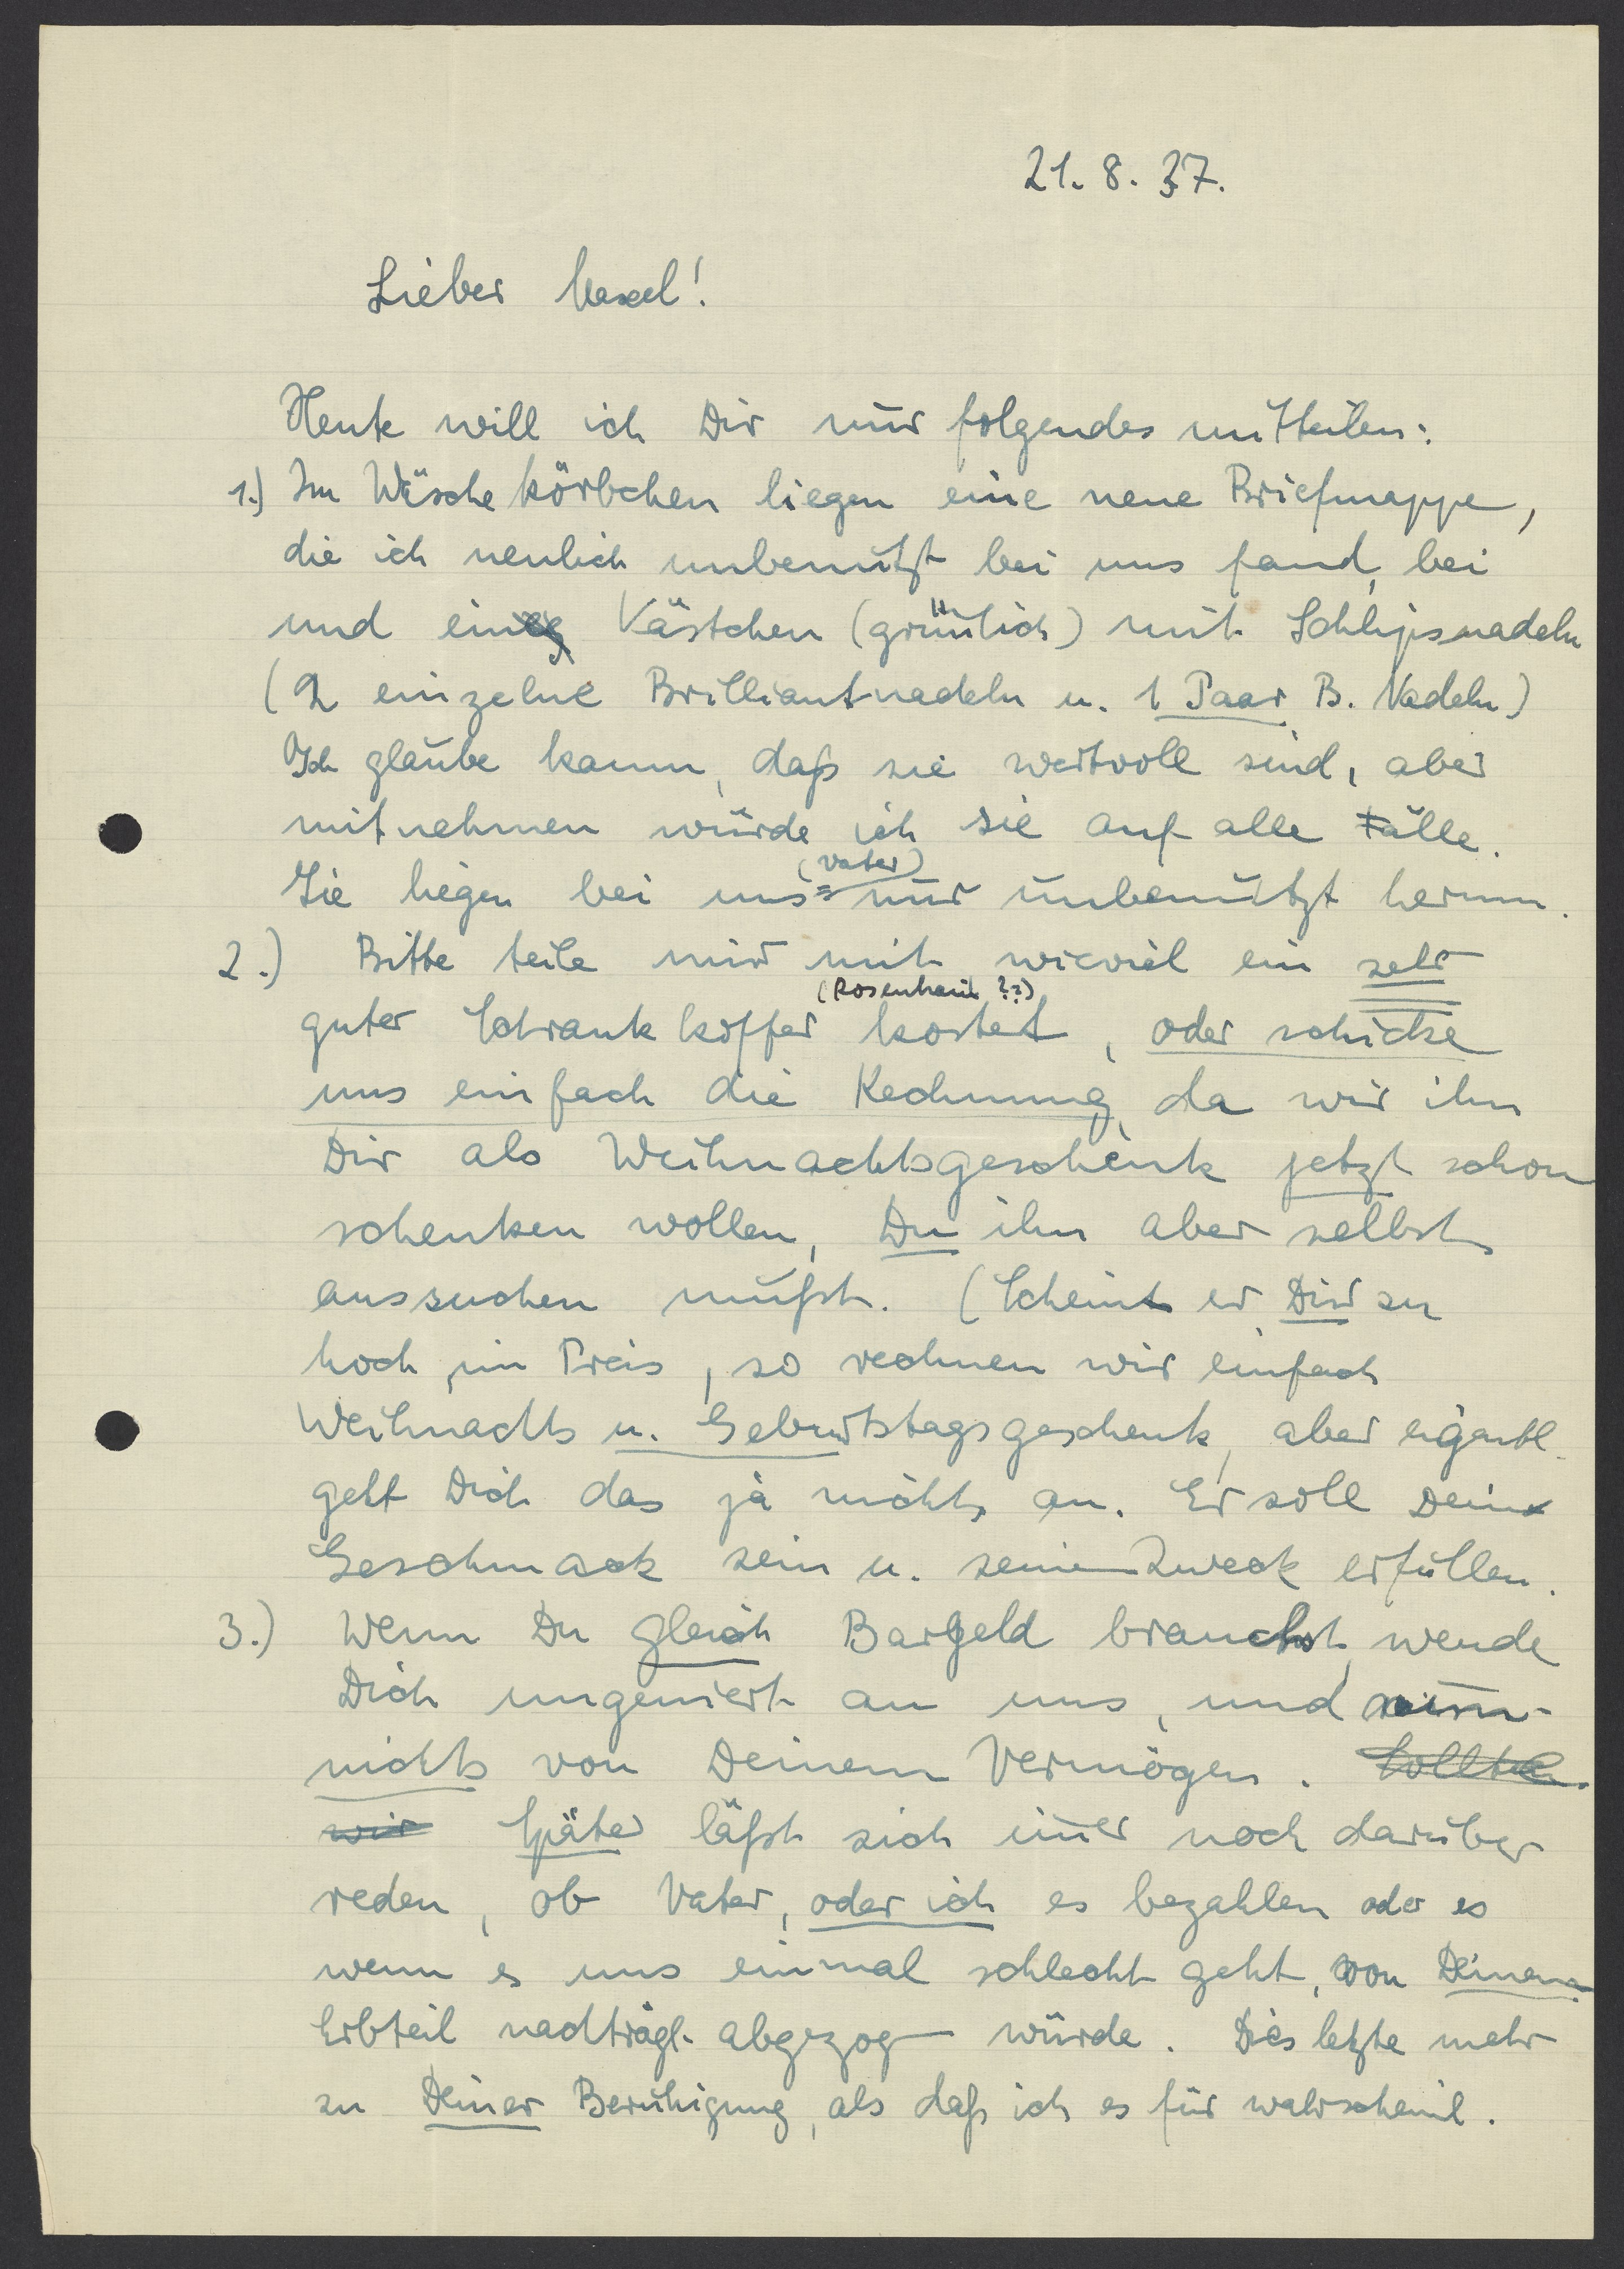 21. 8. 37.
Lieber Maxel!
Heute will ich Dir nur folgendes mitteilen:
1.) Im Wäschekörbchen liegen eine neue Briefmappe,
die ich neulich unbenutzt bei uns fand, bei
und ein Kästchen (grünlich) mit Schlipsnadeln
(2 einzelne Brilliantnadeln u. 1 Paar B. Nadeln)
Ich glaube kaum, daß sie wertvoll sind, aber
mitnehmen würde ich sie auf alle Fälle.
(Vater)
Sie liegen bei uns nur unbenutzt herum.
2.) Bitte teile mir mit wieviel ein sehr
(Rosenhain ??)
guter Schrankkoffer kostet, oder schicke
uns einfach die Rechnung, da wir ihn
Dir als Weihnachtsgeschenk jetzt schon
schenken wollen, Du ihn aber selbst
aussuchen mußt. (Scheint er Dir zu
hoch im Preis, so rechnen wir einfach
Weihnachts u. Geburtstagsgeschenk, aber eigentl.
geht Dich das ja nichts an. Er soll Dein
Geschmack sein u. seinen Zweck erfüllen.
3.) Wenn Du gleich Bargeld brauchst, wende
Dich ungeniert an uns, und nim̅
nichts von Deinem Vermögen. Sollten
wir Später läßt sich im̅er noch darüber
reden, ob Vater, oder ich es bezahlen oder es
wenn es uns einmal schlecht geht, von Deinem
Erbteil nachträgl. abgezogen würde. Dies letzte mehr
zu Deiner Beruhigung, als daß ich es für wahrscheinl.